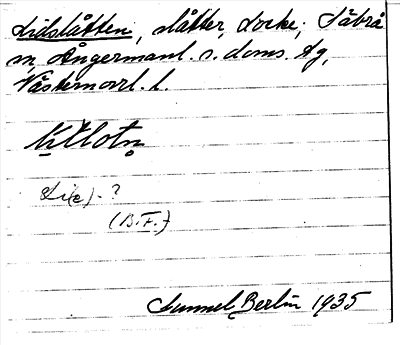 Lidslåtten, slåtter, Locke; Säbrå
sn, Ångermanl. s. doms. dg,
Västernorrl. l.
Li(e)-?
(B.F.)
Gunnel Berlin 1935